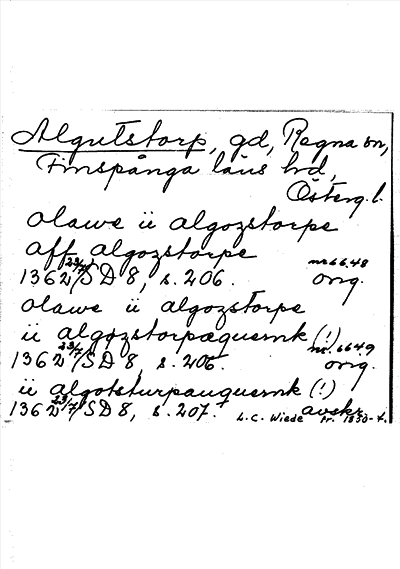 Algutstorp, gd, Regna sn,
Finspånga läns hd,
Österg. l.
olawe ii algozstorpe
aff algozstorpe
1362 23/7 SD 8, s. 206. nr 6648 orig.
olawe ii algozstorpe
ii algozstorpæquernk (!)
1362 23/7 SD 8, s. 206. nr. 6649 orig.
ii algotsturpauquernk (!)
1362 23/7 SD 8, s. 207. L. C. Wiede fr. 1850-t. avskr.